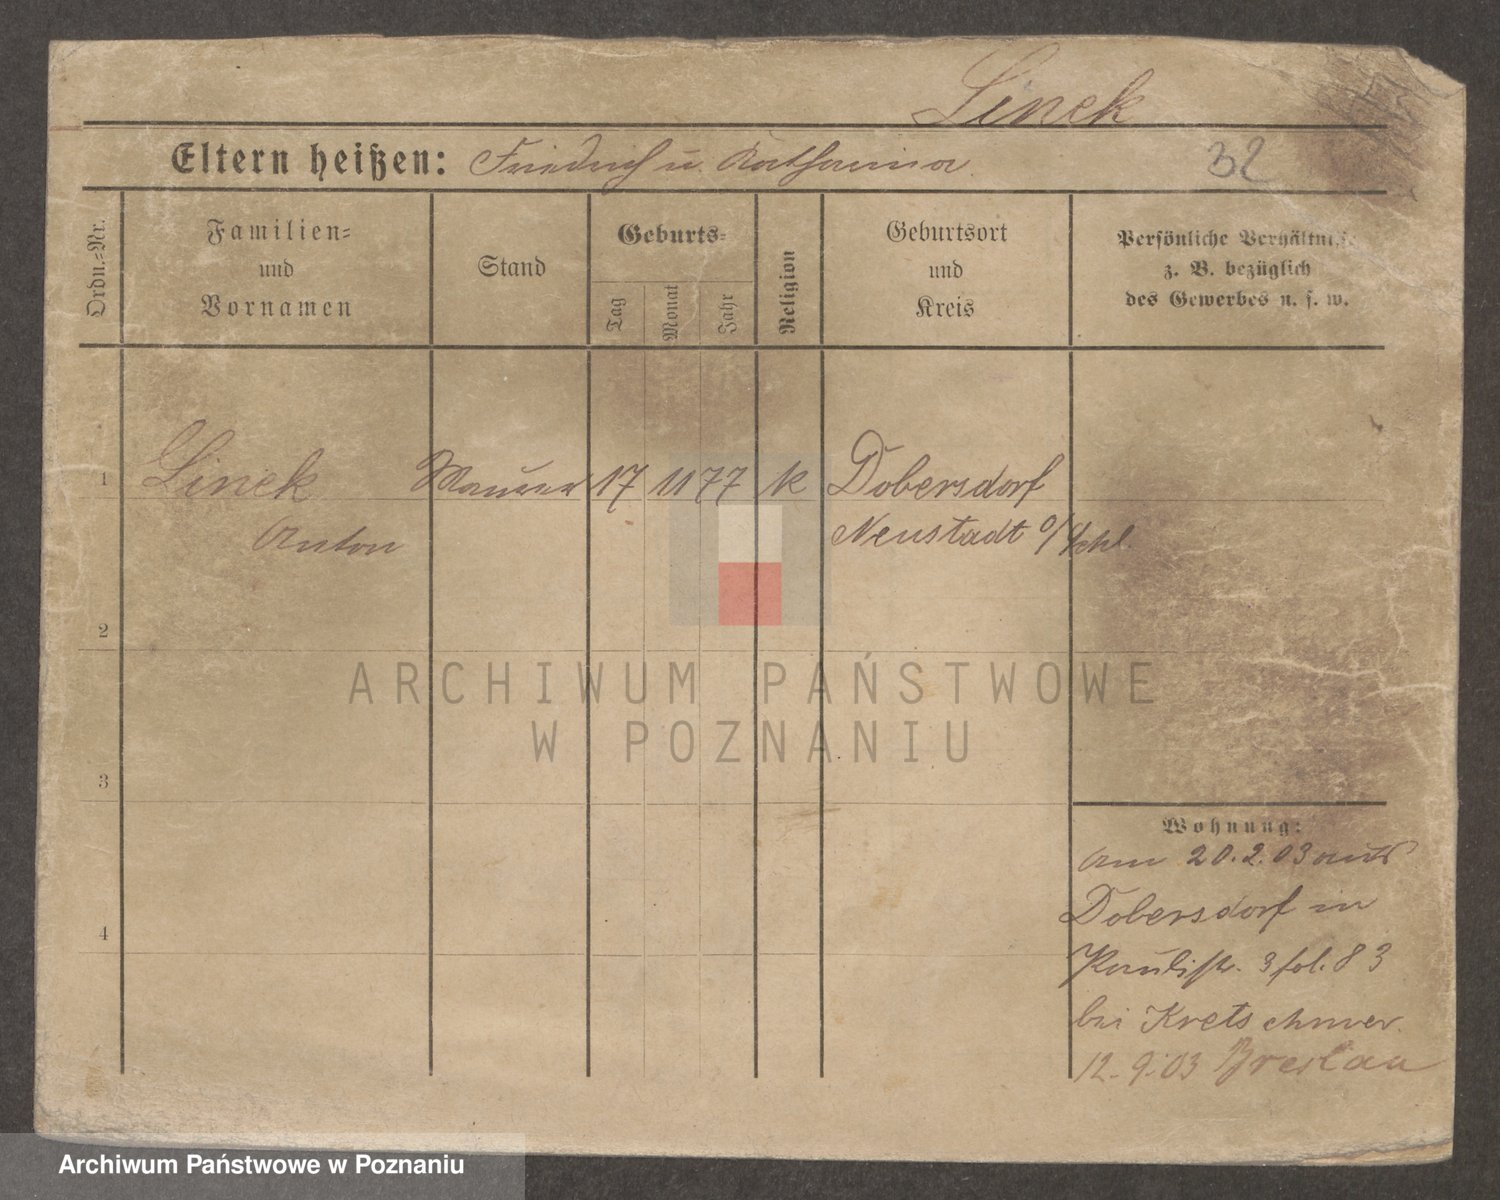 Linek
Eltern heißen: Friedrich u. Katharina
32
Ordn.-Nr.
Familien-
und
Vornamen
Stand
Geburts-
Tag
Monat
Jahr
Religion
Geburtsort
und
Kreis
Persönliche Verhältnisse
z. B. bezüglich
des Gewerbes u. s. w.
1
Linek Maurer 17 11 77 k Dobersdorf
Anton Neustadt o/Schl.
2
3
4
Wohnung:
am 20.2.03 aus
Dobersdorf in
3 fol. 83
bei Kretschmer
12.9.03 Breslau
ARCHIWUM PAŃSTWOWE
W POZNANIU
Archiwum Państwowe w Poznaniu